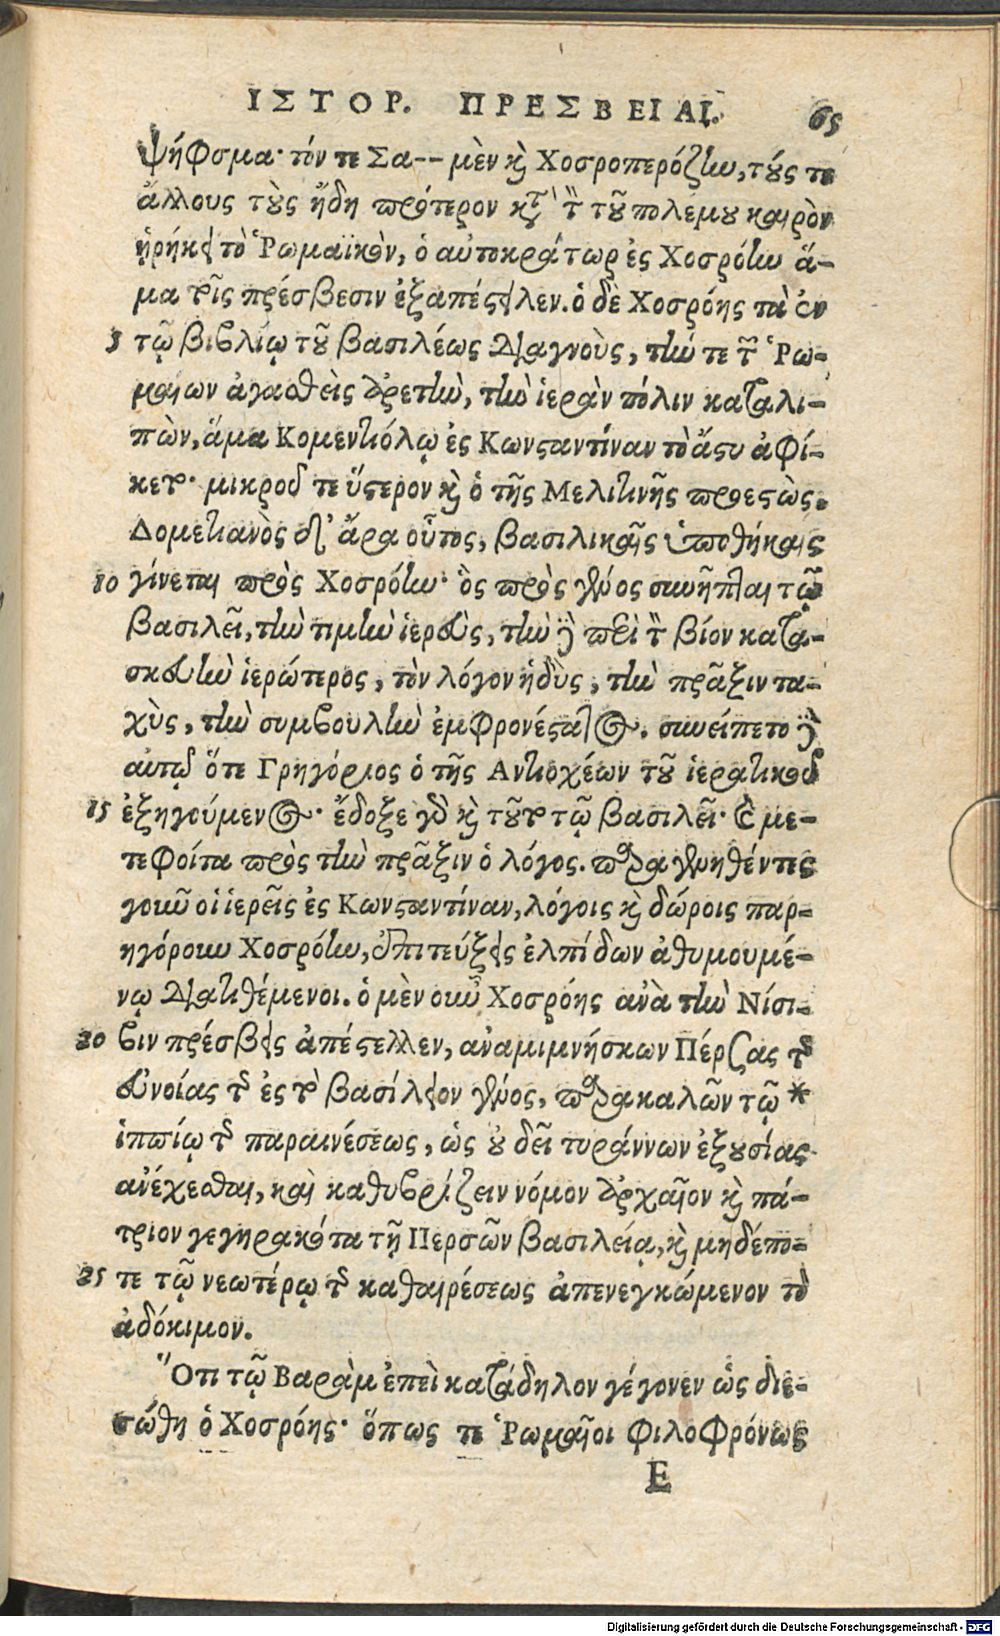 ΙΣΤΟΡ. ΠΡΕΣΒΕΙΑΙ. 65
ψήφσμα· τόν τε Σα-- μὲν κὶ Χοσροπερόζlω, τούς τε
ἄλλους τοὺς ἤδη πρότερον κτ τ τοῦ πολέμου καιρὸν
ᾑρήκει τὸ Ῥωμαϊκὸν, ὁ αὐτοκράτωρ ἐς Χοσρόην ἅ-
μα τοῖς πρέσβεσιν ἐξαπέστειλεν. ὁ δὲ Χοσρόης τὰ ἐν
5 τῷ βιβλίῳ τοῦ βασιλέως διαγνοὺς, τήν τε τῶν Ῥω-
μαίων ἀγασθεὶς ἀρετὴν, τὴν ἱερὰν πόλιν καταλι-
πὼν, ἅμα Κομεντιόλῳ ἐς Κωνσταντίναν τὸ ἄστυ ἀφί-
κετο· μικροῦ τε ὕστερον καὶ ὁ τῆς Μελιτινῆς προεστὼς.
Δομετιανὸς δ' ἄρα οὗτος, βασιλικαῖς ὑποθήκαις
10 γίνεται πρὸς Χοσρόην· ὃς πρὸς γένος συνῆπται τῷ
βασιλεῖ, τὴν τιμὴν ἱερεὺς, τὴν δὲ περὶ τὸν βίον κατα-
σκευὴν ἱερώτερος, τὸν λόγον ἡδὺς, τὴν πρᾶξιν τα-
χὺς, τὴν συμβουλὴν ἐμφρονέστατος. συνείπετο δὲ
αὐτῷ ὅτε Γρηγόριος ὁ τῆς Αντιοχέων τοῦ ἱερατικοῦ
15 ἐξηγούμενος· ἔδοξε γὰρ καὶ τοῦτο τῷ βασιλεῖ· καὶ με-
τεφοίτα πρὸς τὴν πρᾶξιν ὁ λόγος. παραγενηθέντες
γοῦν οἱ ἱερεῖς ἐς Κωνσταντίναν, λόγοις καὶ δώροις παρ-
ηγόρουν Χοσρόην, ἐπιτεύξεις ἐλπίδων ἀθυμουμέ-
νῳ διατιθέμενοι. ὁ μὲν οὖν Χοσρόης ἀνὰ τὴν Νίσι-
20 βιν πρέσβεις ἀπέστελλεν, ἀναμιμνήσκων Πέρσας τῆς
εὐνοίας τῆς ἐς τὸ βασίλειον γένος, παρακαλῶν τῷ *
ἱππίῳ τῆς παραινέσεως, ὡς οὐ δεῖ τυράννων ἐξουσίας
ἀνέχεσθαι, καὶ καθυβρίζειν νόμον ἀρχαῖον καὶ πά-
τριον γεγηρακότα τῇ Περσῶν βασιλείᾳ, καὶ μηδέπο-
25 τε τῷ νεωτέρῳ τῆς καθαιρέσεως ἀπενεγκώμενον τὸ
ἀδόκιμον.
Ὅτι τῷ Βαρὰμ ἐπεὶ κατάδηλον γέγονεν ὡς διε-
σώθη ὁ Χοσρόης· ὅπως τε Ῥωμαῖοι φιλοφρόνως
E
Digitalisierung gefördert durch die Deutsche Forschungsgemeinschaft - DFG